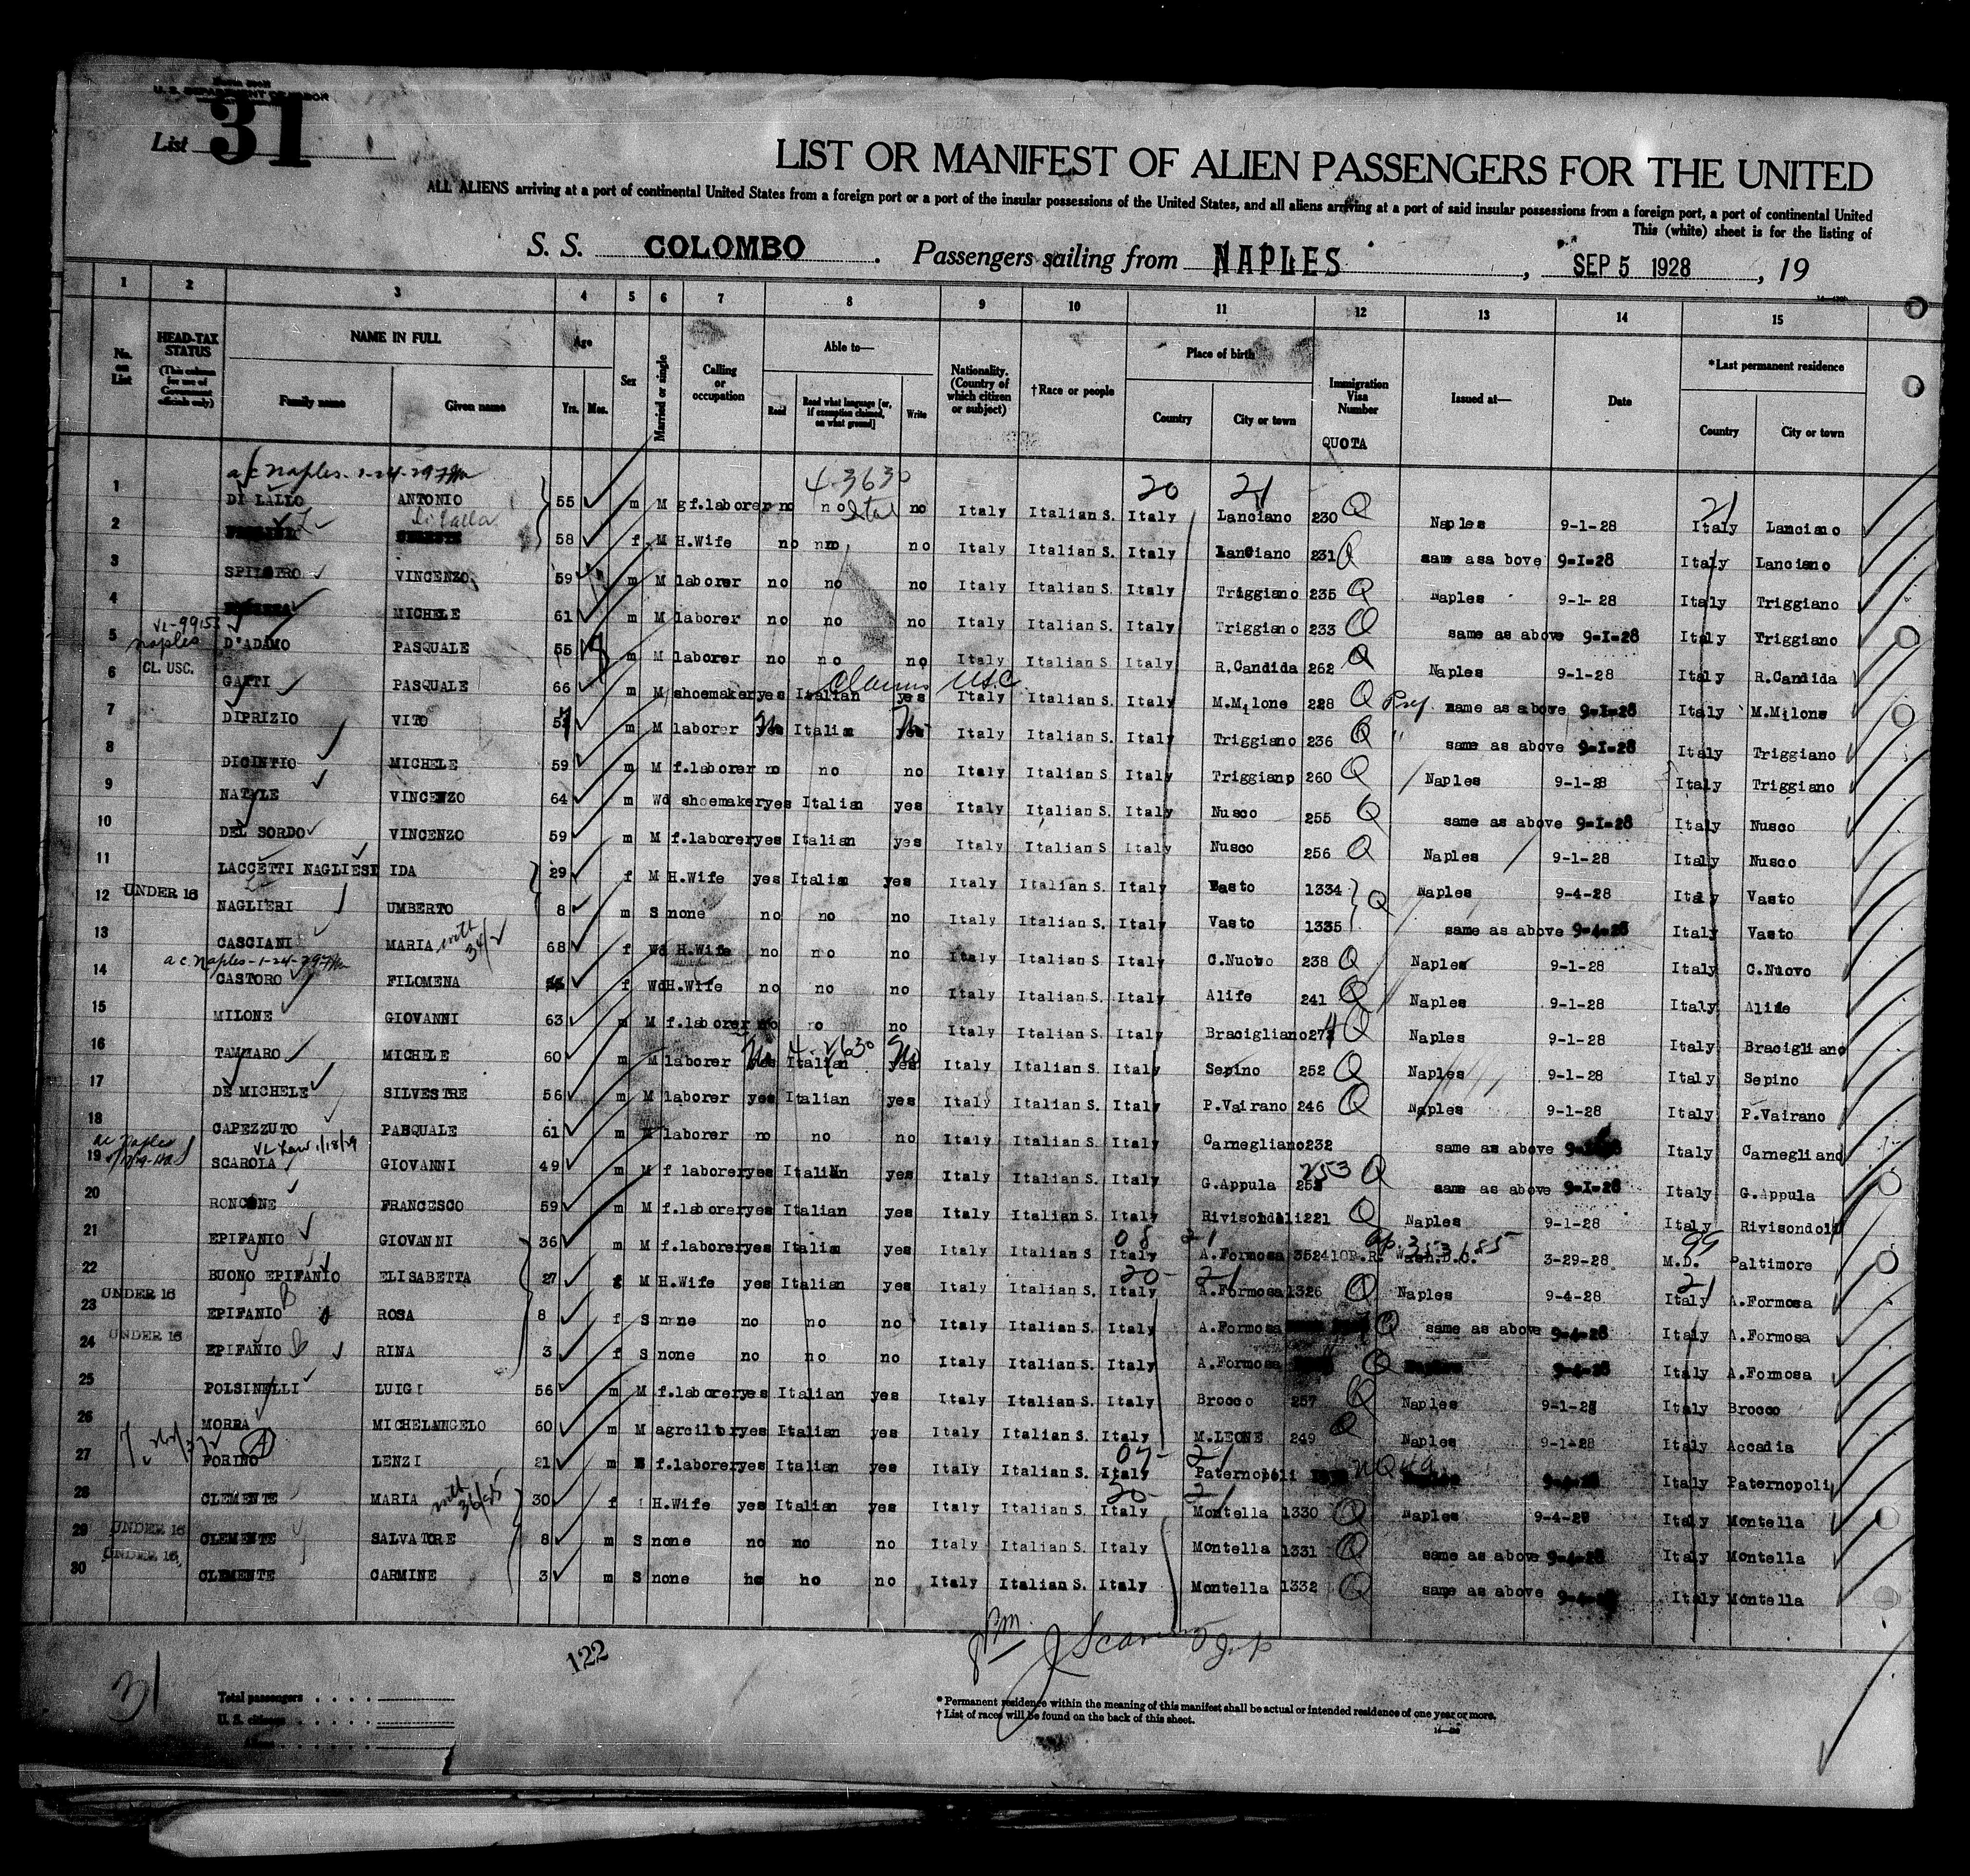 U. S. DEPARTMENT OF LABOR
List 31
LIST OR MANIFEST OF ALIEN PASSENGERS FOR THE UNITED
ALL ALIENS arriving at a port of continental United States from a foreign port or a port of the insular possessions of the United States, and all aliens arriving at a port of said insular possessions from a foreign port, a port of continental United
This (white) sheet is for the listing of
S. S. COLOMBO. Passengers sailing from NAPLES, SEP 5 1928, 19
1 2 3 4 5 6 7 8 9 10 11 12 13 14 15
No. on List
HEAD-TAX STATUS (This column for use of Government officials only)
NAME IN FULL
Family name Given name
Age Yrs. Mos.
Sex
Married or single
Calling or occupation
Able to—
Read Read what language [or, if exemption claimed, on what ground] Write
Nationality. (Country of which citizen or subject)
†Race or people
Place of birth
Country City or town
Immigration Visa Number
QUOTA
Issued at—
Date
*Last permanent residence
Country City or town
a/c Naples - 1-24-29 4-3630 20 21 21
1 DI LALLO ANTONIO 55 m M gf.laborer no no Ital no Italy Italian S. Italy Lanciano 230 Q Naples 9-1-28 Italy Lanciano
Di Lallo
2 58 f M H.Wife no no no Italy Italian S. Italy Lanciano 231 Q same asa bove 9-I-28 Italy Lanciano
3 SPILOTRO VINCENZO 59 m M laborer no no no Italy Italian S. Italy Triggiano 235 Q Naples 9-1-28 Italy Triggiano
4 MICHELE 61 m M laborer no no no Italy Italian S. Italy Triggiano 233 Q same as above 9-I-28 Italy Triggiano
VL-99153 Naples
5 D'ADAMO PASQUALE 55 m M laborer no no no Italy Italian S Italy R.Candida 262 Q Naples 9-1-28 Italy R.Candida
CL. USC. Claims USC
6 GATTI PASQUALE 66 m M shoemaker yes Italian yes Italy Italian S. Italy M.Milone 228 Q Pref. same as above 9-I-28 Italy M.Milone
7 DIPRIZIO VITO m M laborer No Italian No Italy Italian S. Italy Triggiano 236 Q " same as above 9-I-28 Italy Triggiano
8 DICINTIO MICHELE 59 m M f.laborer no no no Italy Italian S. Italy Triggianp 260 Q Naples 9-1-28 Italy Triggiano
9 NATALE VINCENZO 64 m Wd shoemaker yes Italian yes Italy Italian S. Italy Nusco 255 Q same as above 9-I-28 Italy Nusco
10 DEL SORDO VINCENZO 59 m M f.laborer yes Italian yes Italy Italian S Italy Nusco 256 Q Naples 9-1-28 Italy Nusco
11 LACCETTI NAGLIERI IDA 29 f M H.Wife yes Italian yes Italy Italian S. Italy Vasto 1334 Q Naples 9-4-28 Italy Vasto
UNDER 16
12 NAGLIERI UMBERTO 8 m S none no no no Italy Italian S. Italy Vasto 1335 same as above 9-4-28 Italy Vasto
13 CASCIANI MARIA with 34/ 68 f Wd H.Wife no no no Italy Italian S. Italy C.Nuovo 238 Q Naples 9-1-28 Italy C.Nuovo
a c Naples - 1-24-29
14 CASTORO FILOMENA f Wd H.Wife no no no Italy Italian S. Italy Alife 241 Q Naples 9-1-28 Italy Alife
15 MILONE GIOVANNI 63 m M f.laborer no no no Italy Italian S. Italy Bracigliano Q Naples 9-1-28 Italy Bracigliano
16 TAMMARO MICHELE 60 m M laborer No Italian No Italy Italian S. Italy Sepino 252 Q Naples 9-1-28 Italy Sepino
17 DE MICHELE SILVESTRE 56 m M laborer yes Italian yes Italy Italian S. Italy P.Vairano 246 Q Naples 9-1-28 Italy P.Vairano
18 CAPEZZUTO PASQUALE 61 m M laborer no no no Italy Italian S. Italy Carnegliano 232 same as above Italy Carnegliano
19 SCAROLA GIOVANNI 49 m M f laborer yes Italian yes Italy Italian S. Italy G.Appula 253 Q same as above 9-I-28 Italy G.Appula
20 RONCONE FRANCESCO 59 m M f.laborer yes Italian yes Italy Italian S Italy Rivisondoli 221 Q Naples 9-1-28 Italy Rivisondoli
08 21 99
21 EPIFANIO GIOVANNI 36 m M f.laborer yes Italian yes Italy Italian S Italy A.Formosa 352410R.R. Wash.D.C. 3-29-28 M.D. Paltimore
20- 21 21
22 BUONO EPIFANIO ELISABETTA 27 f M H.Wife yes Italian yes Italy Italian S. Italy A.Formosa 1326 Q Naples 9-4-28 Italy A.Formosa
UNDER 16
23 EPIFANIO ROSA 8 f S none no no no Italy Italian S. Italy A.Formosa Q same as above 9-4-28 Italy A.Formosa
UNDER 16
24 EPIFANIO RINA 3 f S none no no no Italy Italian S. Italy A.Formosa Q 9-4-28 Italy A.Formosa
25 POLSINELLI LUIGI 56 m M f.laborer yes Italian yes Italy Italian S. Italy Brocco 257 Q Naples 9-1-28 Italy Brocco
26 MORRA MICHELANGELO 60 m M agrciltor yes Italian yes Italy Italian S. Italy M.LEONE 249 Q Naples 9-1-28 Italy Accadia
07- 21
27 FORINO LENZI 21 m f.laborer yes Italian yes Italy Italian S. Italy Paternopoli 9-4-28 Italy Paternopoli
20- 21
28 CLEMENTE MARIA with 30 f H.Wife yes Italian yes Italy Italian S. Italy Montella 1330 Q Naples 9-4-28 Italy Montella
UNDER 16
29 CLEMENTE SALVATORE 8 m S none no no no Italy Italian S. Italy Montella 1331 Q same as above 9-4-28 Italy Montella
UNDER 16
30 CLEMENTE CARMINE 3 m S none no no no Italy Italian S. Italy Montella 1332 Q same as above 9-4-28 Italy Montella
122
31
Total passengers
U. S. citizens
Aliens
* Permanent residence within the meaning of this manifest shall be actual or intended residence of one year or more.
† List of races will be found on the back of this sheet.